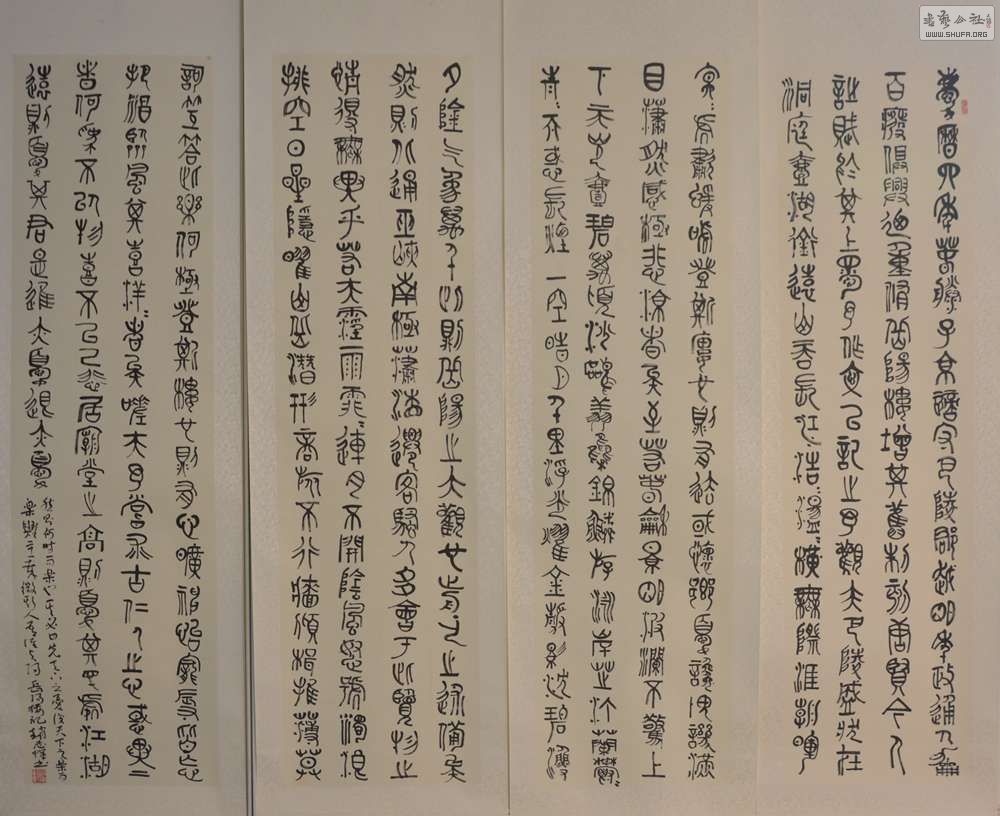 慶曆四年春滕子京謫守巴陵郡越明年政通人和
百廢俱興迺重脩岳陽樓增其舊制刻唐賢今人
詩賦於其上屬予作文以記之予觀夫巴陵盛狀在
洞庭壹湖銜遠山吞長江浩浩湯湯橫無際涯朝暉
冥冥虎嘯猨啼登斯樓也則有去或懷鄉憂讒畏譏滿
目蕭然感極悲者矣至若春龢景明波瀾不驚上
下天光壹碧萬頃沙鷗翔集錦鱗游泳岸芷汀蘭鬱鬱
青青而或長煙一空皓月千里浮光耀金靜影沈璧漁
夕陰氣象萬千此則岳陽之大觀也前人之述備矣
然則北通巫峽南極瀟湘遷客騷人多會于此覽物之
情得無異乎若夫霪雨霏霏連月不開陰風怒號濁浪
排空日星隱曜山岳潛形商旅不行檣傾楫摧薄莫
謌互答此樂何極登斯樓也則有心曠神怡寵辱皆忘
把酒臨風其喜洋洋者矣嗟夫予嘗求古仁人之心或異二
者何哉不以物喜不以己悲居廟堂之高則憂其民處江湖
遠則憂其君是進亦憂退亦憂
然則何時而樂也其必曰先天下之憂後天下之樂而
樂歟微斯人吾誰與歸岳陽樓記
書藝公社
WWW.SHUFA.ORG